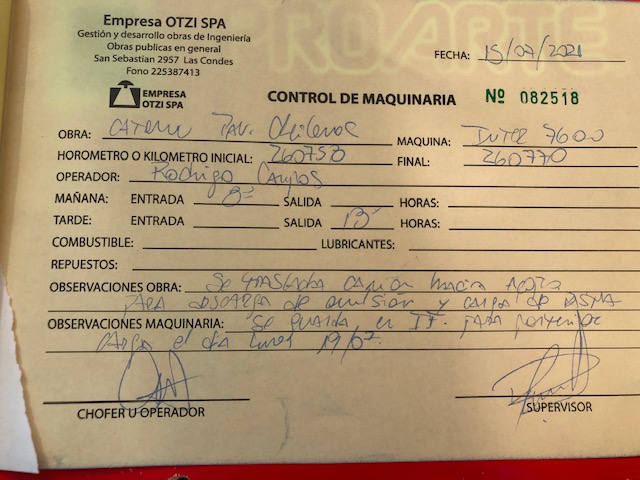 Empresa OTZI SPA
Gestión y desarrollo obras de Ingeniería
Obras publicas en general
San Sebastian 2957 Las Condes
Fono 225387413
FECHA: 15/07/2021
EMPRESA
OTZI SPA
CONTROL DE MAQUINARIA
Nº 082518
OBRA: MAQUINA: Inter 9600
HOROMETRO O KILOMETRO INICIAL: 260758 FINAL: 260770
OPERADOR: Rodrigo
MAÑANA: ENTRADA 8 SALIDA HORAS:
TARDE: ENTRADA SALIDA HORAS:
COMBUSTIBLE: LUBRICANTES:
REPUESTOS:
OBSERVACIONES OBRA: Se traslada camion hacia
para de emision y carga de
OBSERVACIONES MAQUINARIA: Se guarda en para
para el dia lunes 19/07.
CHOFER U OPERADOR
SUPERVISOR